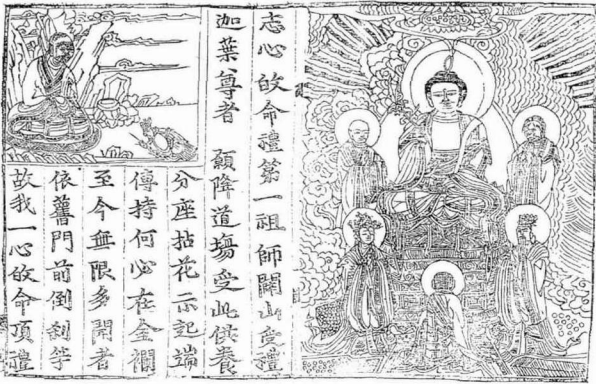 志心皈命禮第一祖師山受禮
迦葉尊者 願降道場受此供養
分座拈花示記端
傳持何必在金襴
至今無限多聞者
依舊門前倒刹竿
故我一心皈命頂禮